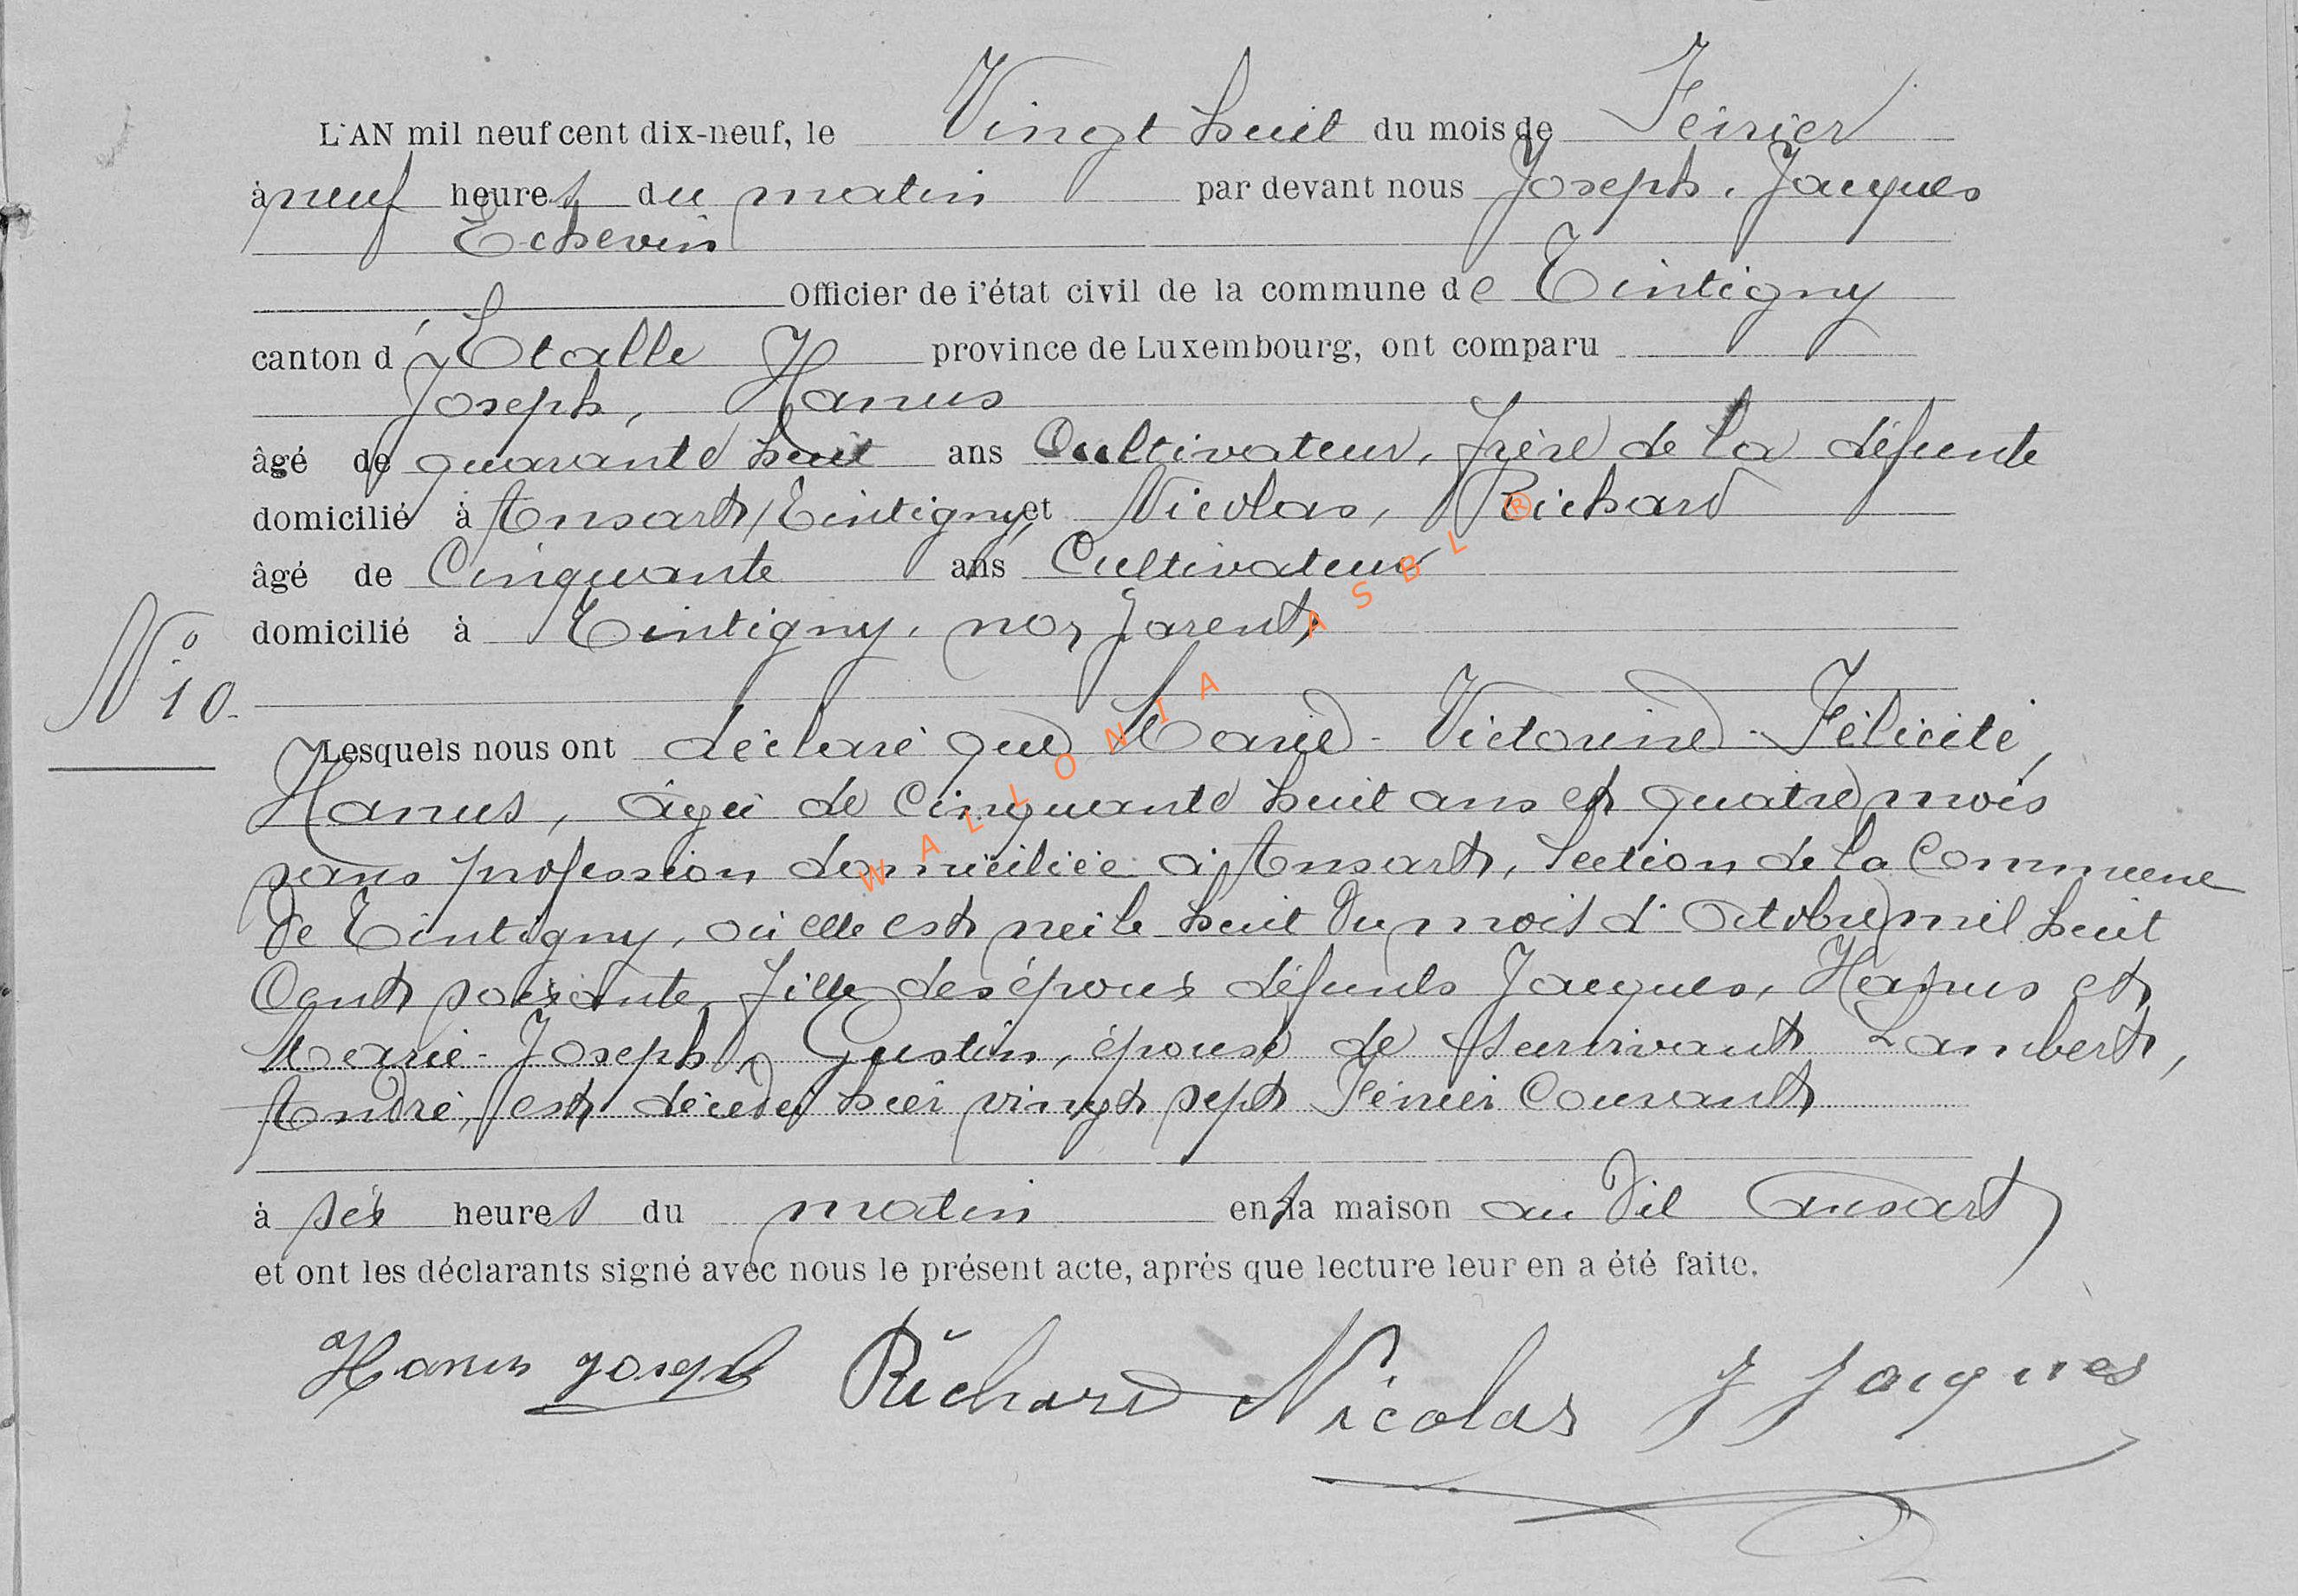 L'AN mil neuf cent dix-neuf, le Vingt huit du mois de Février
à neuf heures du matin par devant nous Joseph, Jacques
Echevin
Officier de l'état civil de la commune de Tintigny
canton d'Etalle province de Luxembourg, ont comparu
Joseph, Hanus
âgé de quarante huit ans Cultivateur, frère de la défunte
domicilié à Ansart, Tintigny, et Nicolas, Richard
âgé de Cinquante ans Cultivateur
domicilié à Tintigny, non parent,
N° 10
Lesquels nous ont déclaré que Marie-Victorine-Félicité,
Hanus, âgée de Cinquante huit ans et quatre mois
sans profession domiciliée à Ansart, Section de la Commune
de Tintigny, où elle est née le huit du mois d'Octobre mil huit
Cent soixante, fille des époux défunts Jacques, Hanus et
Marie-Joseph, Gustin, épouse de survivant Lambert,
André, est décédée hier vingt sept Février Courant
à six heures du matin en la maison au dit Ansart
et ont les déclarants signé avec nous le présent acte, après que lecture leur en a été faite.
Hanus Joseph Richard Nicolas J Jacques
WALLONIA ASBL ®